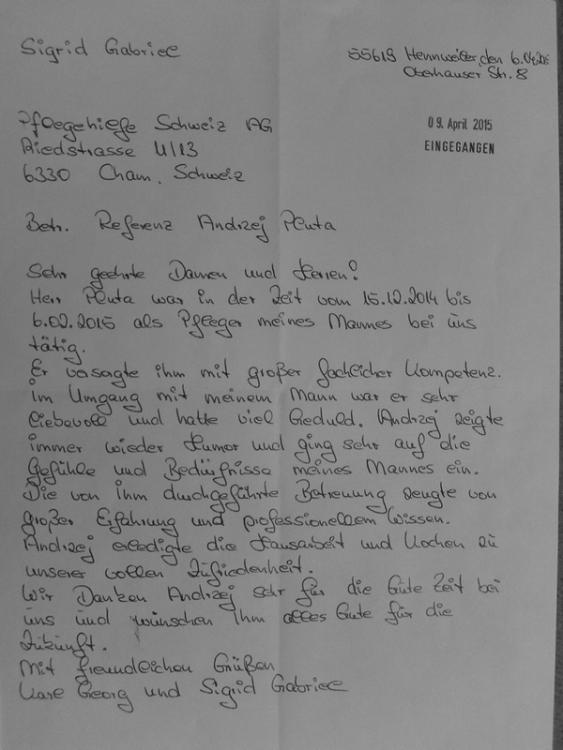 Sigrid Gabriel
55619 Hennweiler, den 6.04.2015
Oberhauser Str. 8
Pflegehilfe Schweiz AG
Riedstrasse 11/13
6330 Cham, Schweiz
09. April 2015
EINGEGANGEN
Betr. Referenz Andrzej Pluta
Sehr geehrte Damen und Herren!
Herr Pluta war in der Zeit vom 15.12.2014 bis
6.02.2015 als Pfleger meines Mannes bei uns
tätig.
Er versorgte ihm mit großer fachlicher Kompetenz.
im Umgang mit meinem Mann war er sehr
liebevoll und hatte viel Geduld. Andrzej zeigte
immer wieder Humor und ging sehr auf die
Gefühle und Bedürfnisse meines Mannes ein.
Die von ihm durchgeführte Betreuung zeugte von
großer Erfahrung und professionellem Wissen.
Andrzej erledigte die Hausarbeit und Kochen zu
unserer vollen Zufriedenheit.
Wir Danken Andrzej sehr für die Gute Zeit bei
uns und wünschen ihm alles Gute für die
Zukunft.
Mit freundlichen Grüßen
Karl Georg und Sigrid Gabriel